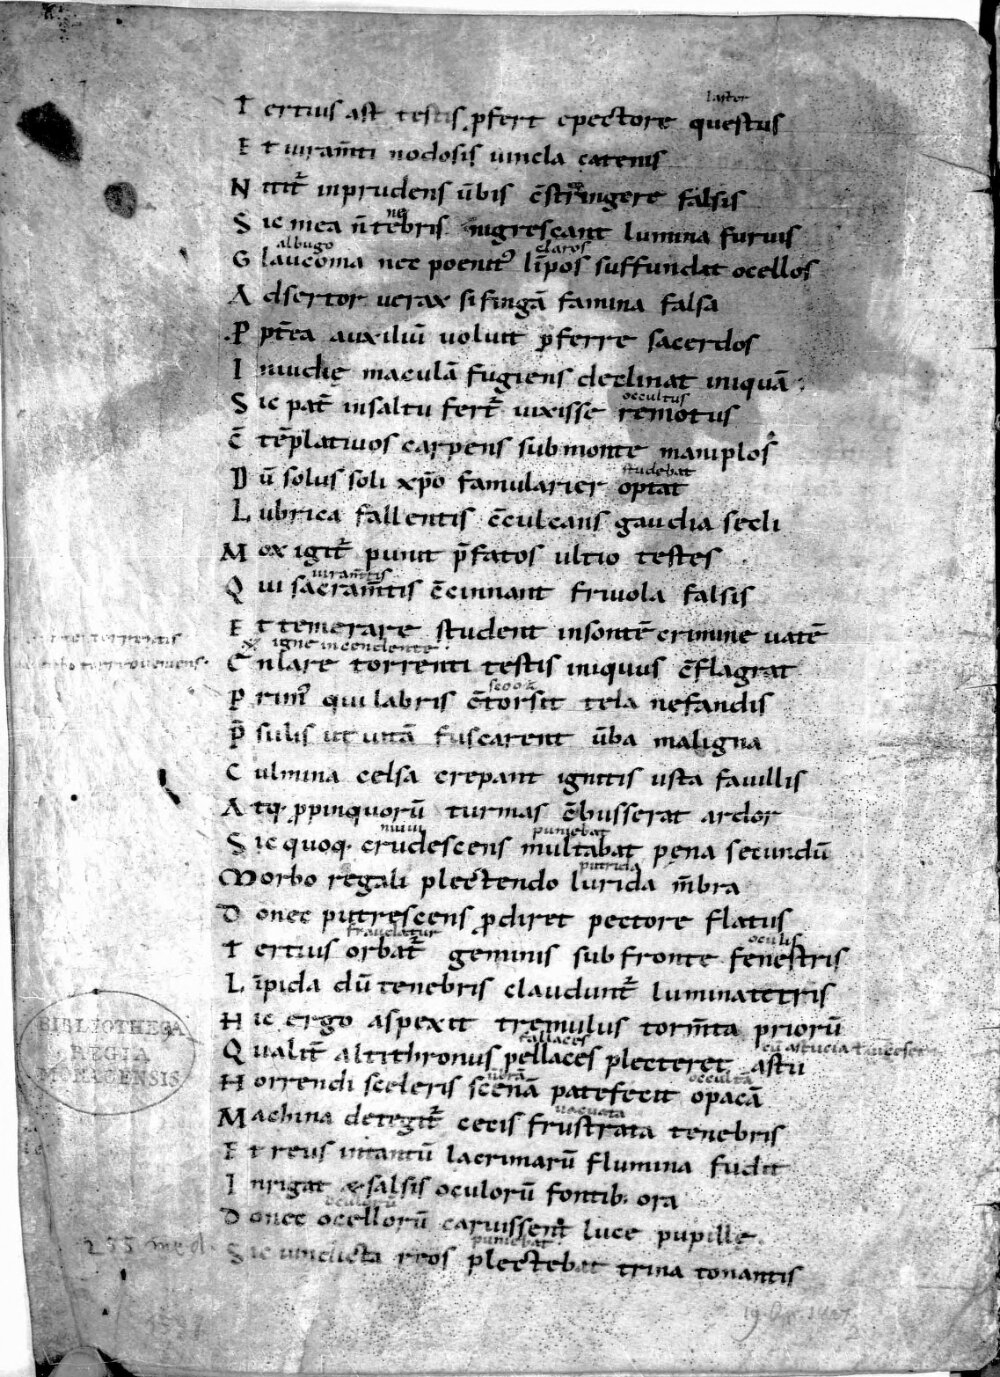 lastor
T ertius ast testis ꝓfert epectore questus
E t iuram̅ti nodosis uincla catenis
N itit᷑ inprudens u̅bis c̅stringere falsis
S ic mea n̅ tenebris nigrescant lumina furuis
albugo claros
G laucoma nec poenit᷑ li̅pos suffundat ocellos
A dsertor uerax si finga̅ famina falsa
P pt̅ea auxiliu̅ uoluit ꝓferre sacerdos
I nuidię macula̅ fugiens declinat iniqua̅
occultus
S ic pat̅ insaltu fert᷑ uixisse remotus
C̅ te̅platiuos carpens submonte maniplos
studebat
D u̅ solus soli xp̅o famularier optat
L ubrica fallentis c̅culcans gaudia secli
M ox igit᷑ punit p̅fatos ultio testes
iuram̅tis
Q ui sacram̅tis c̅cinnant friuola falsis
E t temerare student insonte̅ crimine uate̅
igne incendente
C̅ flare torrenti testis iniquus c̅flagrat
P rim᷑ qui labris c̅torsit tela nefandis
P̅ sulis ut uita̅ fuscarent u̅ba maligna
C ulmina celsa crepant ignitis usta fauillis
A tq. ꝓpinquoru̅ turmas c̅busserat ardor
puniebat
S ic quoq. crudescens multabat pęna secundu̅
putrida
M orbo regali plectendo lurida m̅bra
D onec putrescens ꝓdiret pectore flatus
fraudatur oculis
T ertius orbat᷑ geminis sub fronte fenestris
L i̅pida du̅ tenebris claudunt᷑ lumina tetris
H ic ergo aspexit tremulus torm̅ta prioru̅
fallaces
Q ualit̅ altithronus pellaces plecteret astu
u̅bra̅ occulta̅
H orrendi sceleris scena̅ patefecit opaca̅
uacuata
M achina detegit᷑ cecis frustrata tenebris
E t reus intantu̅ lacrimaru̅ flumina fudit
I nrigat & salsis oculoru̅ fontib. ora
oculoru̅
D onec ocelloru̅ caruissent luce pupillę
puniebat
S ic uindicta reos plectebat trina tonantis
BIBLIOTHECA
REGIA
MONACENSIS